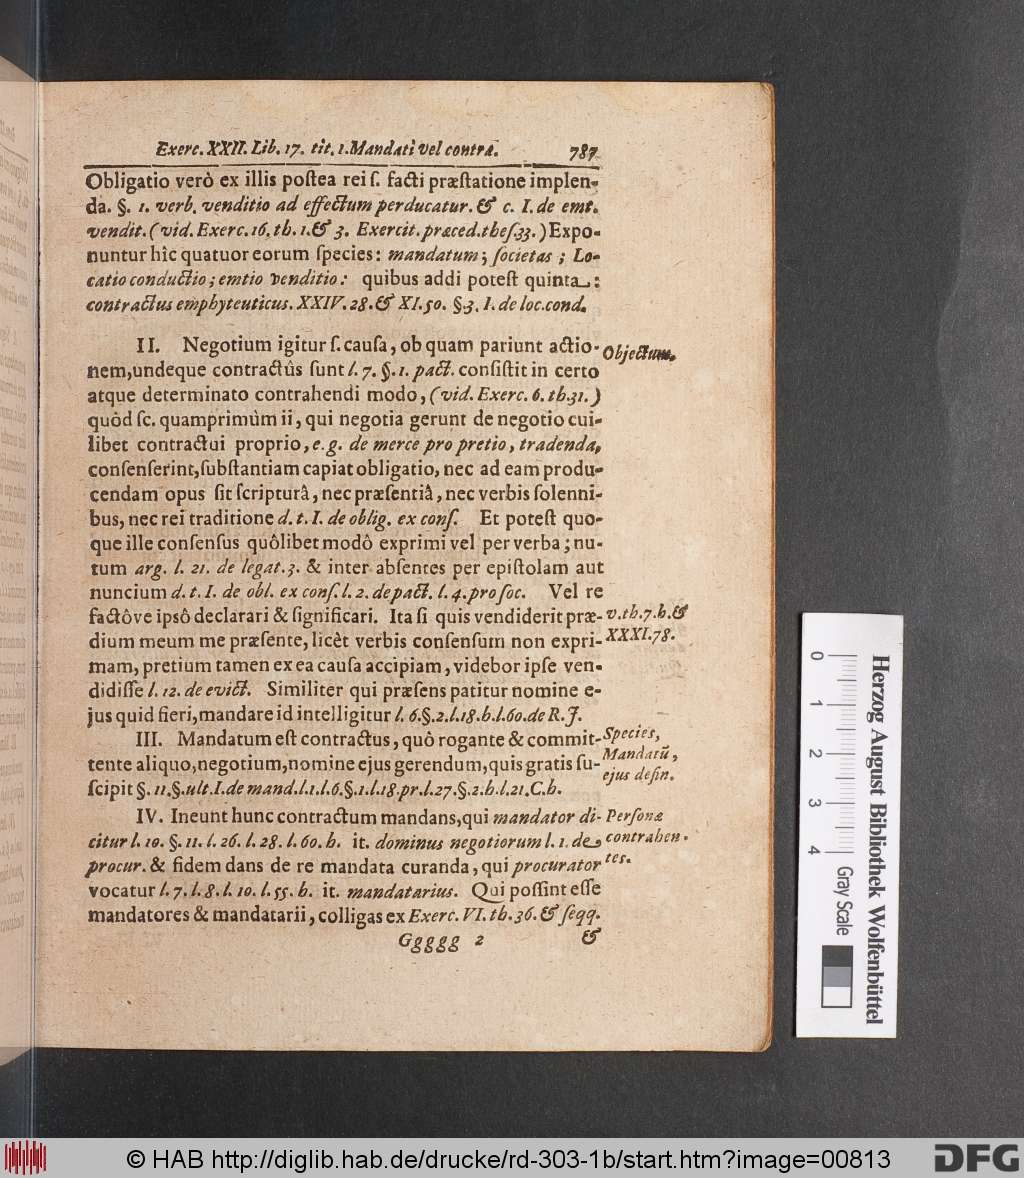 Exerc. XXII. Lib. 17. tit. 1. Mandati vel contra. 787
Obligatio verò ex illis poſtea rei ſ. facti præſtatione implen-
da. §. 1. verb. venditio ad effectum perducatur. & c. I. de emt.
vendit. (vid. Exerc. 16. th. 1. & 3. Exercit. præced. theſ. 33.) Expo-
nuntur hîc quatuor eorum ſpecies: mandatum; ſocietas; Lo-
catio conductio; emtio venditio: quibus addi poteſt quinta:
contractus emphyteuticus. XXIV. 28. & XI. 50. §3. I. de loc. cond.
II. Negotium igitur ſ. cauſa, ob quam pariunt actio-
nem, undeque contractûs ſunt l. 7. §. 1. pact. conſiſtit in certo
atque determinato contrahendi modo, (vid. Exerc. 6. th. 31.)
quòd ſc. quamprimùm ii, qui negotia gerunt de negotio cui-
libet contractui proprio, e. g. de merce pro pretio, tradenda,
conſenſerint, ſubſtantiam capiat obligatio, nec ad eam produ-
cendam opus ſit ſcripturâ, nec præſentiâ, nec verbis ſolenni-
bus, nec rei traditione d. t. I. de oblig. ex conſ. Et poteſt quo-
que ille conſenſus quôlibet modô exprimi vel per verba; nu-
tum arg. l. 21. de legat. 3. & inter abſentes per epiſtolam aut
nuncium d. t. I. de obl. ex conſ. l. 2. de pact. l. 4. pro ſoc. Vel re
factôve ipsô declarari & ſignificari. Ita ſi quis vendiderit præ-
dium meum me præſente, licèt verbis conſenſum non expri-
mam, pretium tamen ex ea cauſa accipiam, videbor ipſe ven-
didiſſe l. 12. de evict. Similiter qui præſens patitur nomine e-
jus quid fieri, mandare id intelligitur l. 6. §. 2. l. 18. h. l. 60. de R. J.
III. Mandatum eſt contractus, quô rogante & commit-
tente aliquo, negotium, nomine ejus gerendum, quis gratis ſu-
ſcipit §. 11. §. ult. I. de mand. l. 1. l. 6. §. 1. l. 18. pr. l. 27. §. 2. h. l. 21. C. h.
IV. Ineunt hunc contractum mandans, qui mandator di-
citur l. 10. §. 11. l. 26. l. 28. l. 60. h. it. dominus negotiorum l. 1. de
procur. & fidem dans de re mandata curanda, qui procurator
vocatur l. 7. l. 8. l. 10. l. 55. h. it. mandatarius. Qui poſſint eſſe
mandatores & mandatarii, colligas ex Exerc. VI. th. 36. & ſeqq.
Ggggg 2 &
Objectum.
v. th. 7. h. &
XXXI. 78.
Species,
Mandatū,
ejus defin.
Perſonæ
contrahen-
tes.
0 1 2 3 4
Gray Scale
Herzog August Bibliothek Wolfenbüttel
© HAB http://diglib.hab.de/drucke/rd-303-1b/start.htm?image=00813
DFG